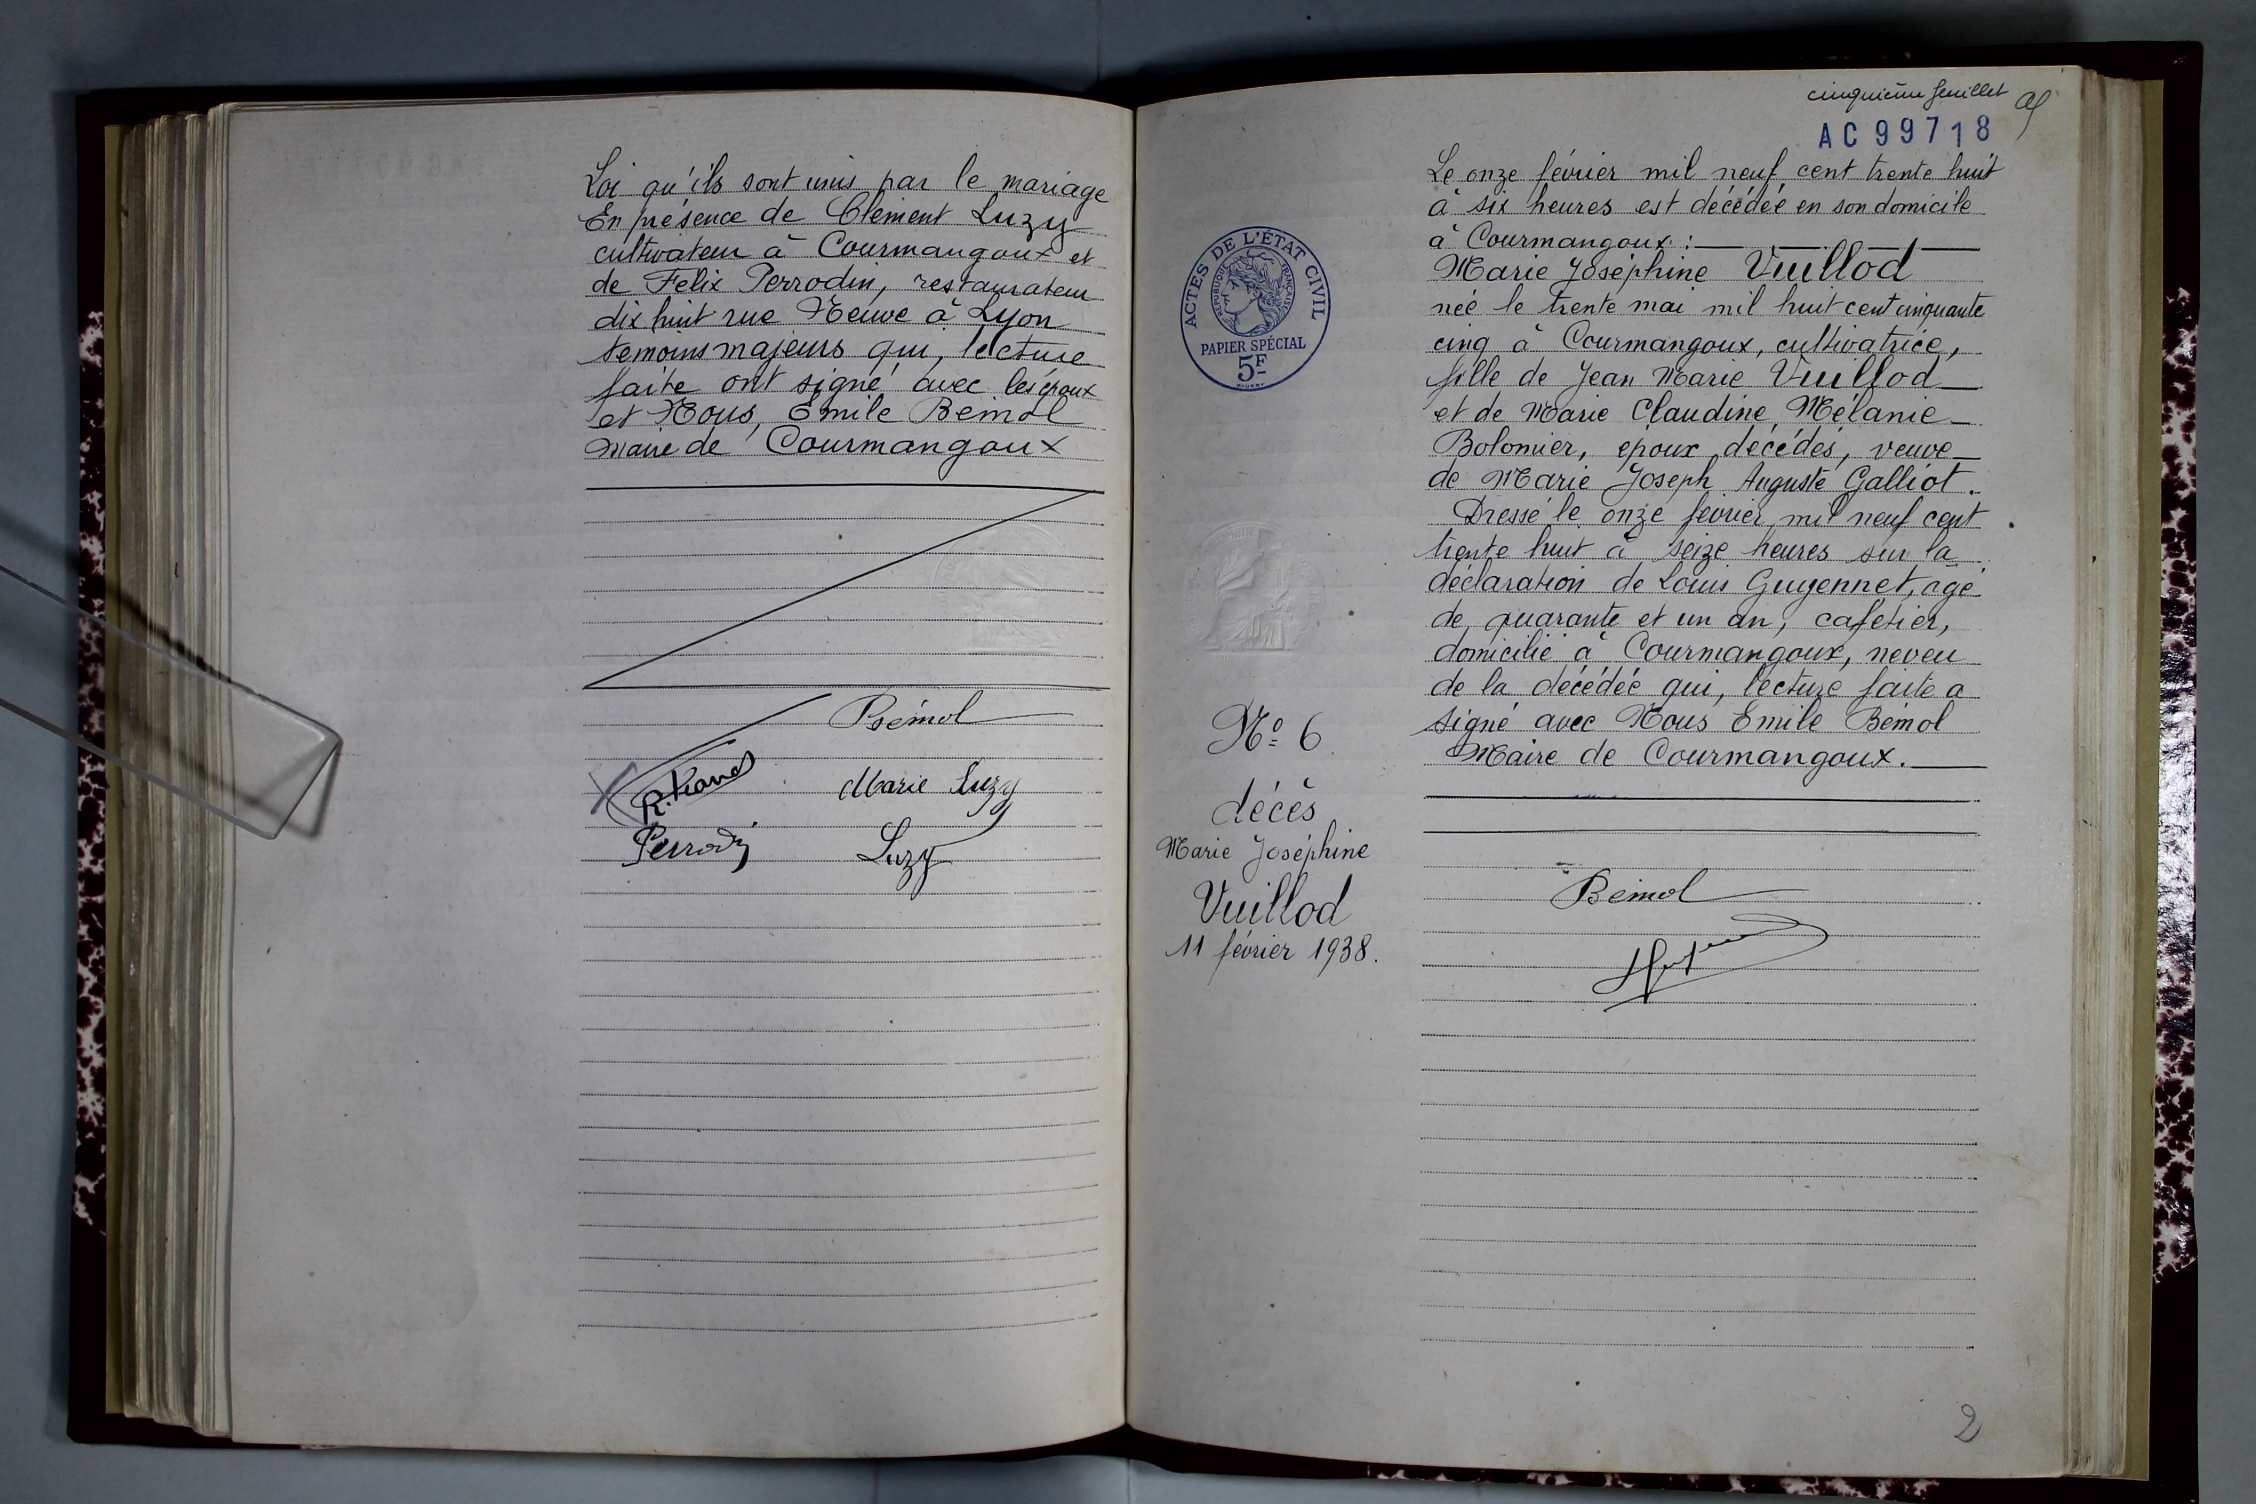 Loi qu'ils sont unis par le mariage
En présence de Clément Luzy
cultivateur à Courmangoux et
de Félix Perrodin, restaurateur
dix huit rue Neuve à Lyon
témoins majeurs qui, lecture
faite ont signé avec les époux
et Nous, Emile Bémol
Maire de Courmangoux
Bémol
Marie Luzy
Perrodin
Luzy
cinquième feuillet
AC99718
ACTES DE L'ÉTAT CIVIL
RÉPUBLIQUE FRANÇAISE
PAPIER SPÉCIAL
5F
N° 6
décès
Marie Joséphine
Vuillod
11 février 1938.
Le onze février mil neuf cent trente huit
à six heures est décédée en son domicile
à Courmangoux :
Marie Joséphine Vuillod
née le trente mai mil huit cent cinquante
cinq à Courmangoux, cultivatrice,
fille de Jean Marie Vuillod
et de Marie Claudine Mélanie
Bolomier, époux décédés, veuve
de Marie Joseph Auguste Galliot.
Dressé le onze février mil neuf cent
trente huit à seize heures sur la
déclaration de Louis Guyennet, âgé
de quarante et un an, cafetier,
domicilié à Courmangoux, neveu
de la décédée qui, lecture faite a
signé avec Nous Emile Bémol
Maire de Courmangoux.
Bémol
2